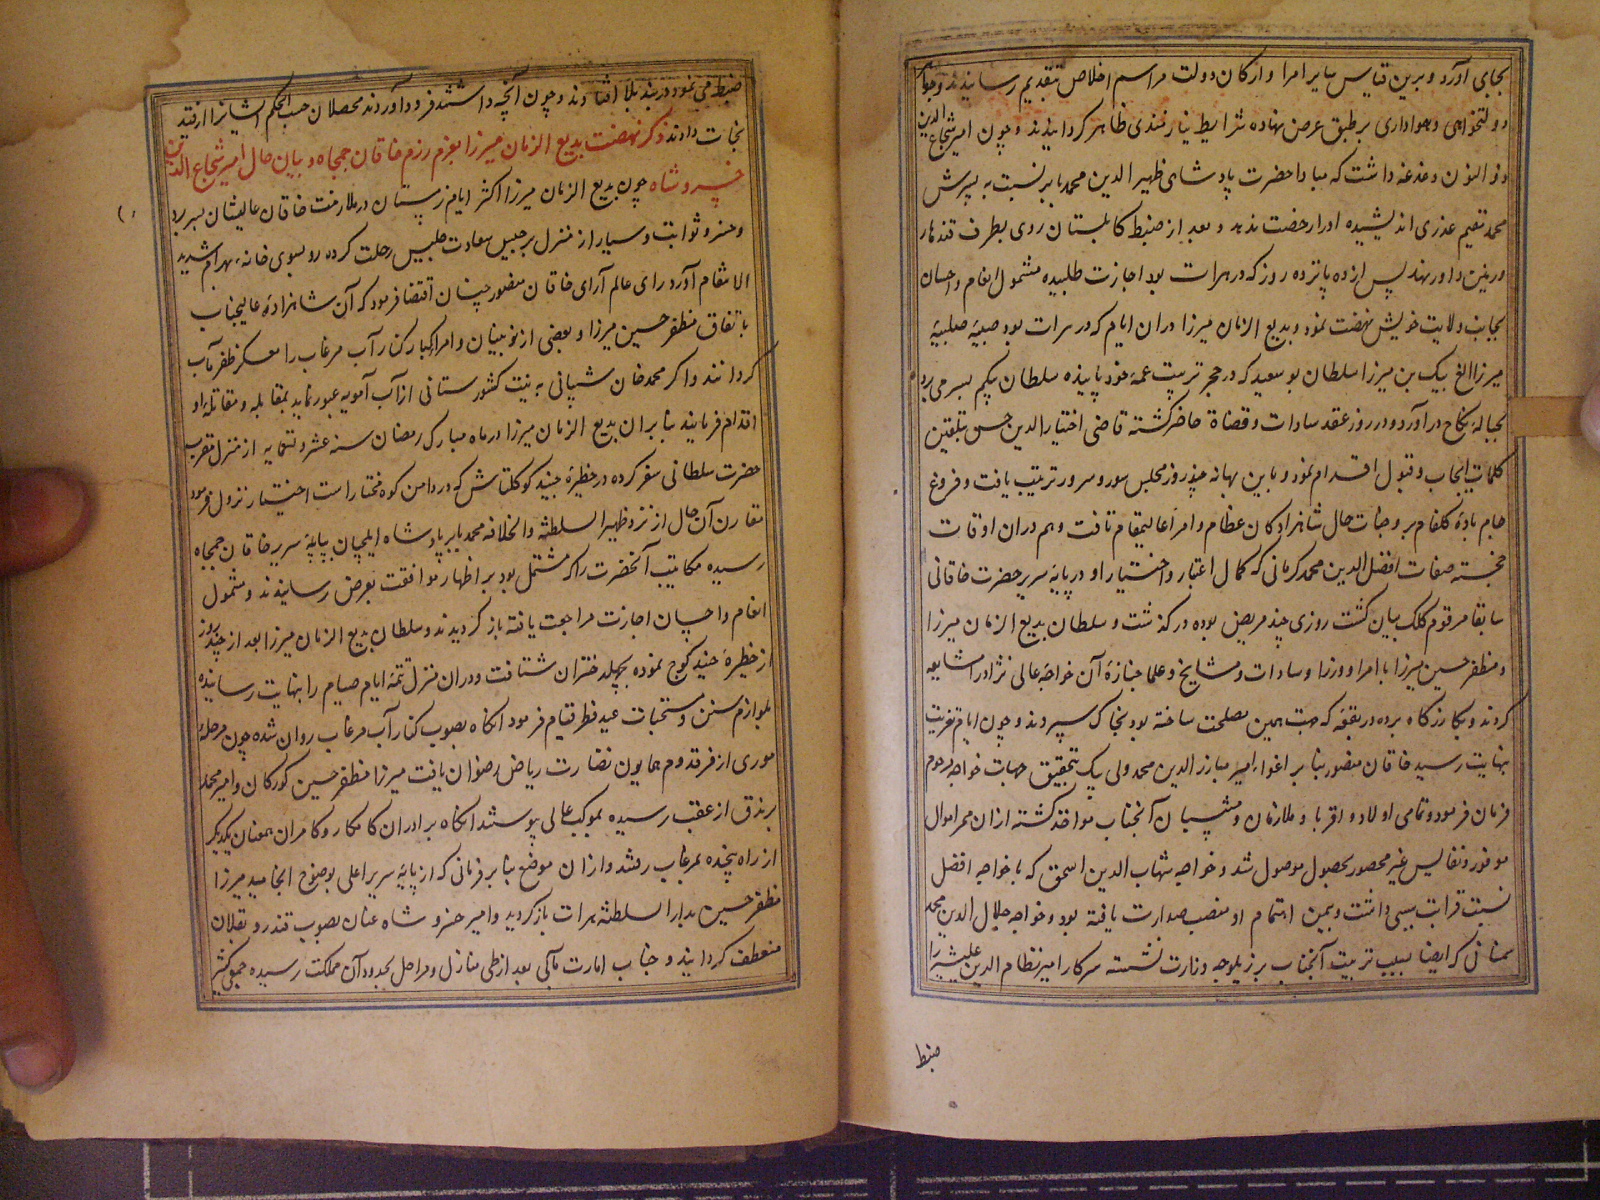 بجای آورد و برین قیاس سایر امرا و ارکان دولت مراسم اخلاص بتقدیم رسانیدند و جواب
دولتخواهی و هواداری بر طبق عرض نهاده شرایط نیازمندی ظاهر کردانیدند و چون امیر شجاع الدین
ذو النون دغدغه داشت که مبادا حضرت پادشاهی ظهیر الدین محمد بابر نسبت به پسرش
محمد مقیم عذری اندیشیده او را رخصت ندهد و بعد از ضبط کابلستان روی بطرف قندهار
و زمین داور نهد پس از ده پانزده روز که در هرات بود اجازت طلبیده مشمول انعام و احسان
بجانب ولایت خویش نهضت نمود و بدیع الزمان میرزا دران ایام که در هرات بود صبیهٔ صلبیهٔ
میرزا الغ بیک بن میرزا سلطان ابو سعید که در حجر تربیت عمهٔ خود پاینده سلطان بیکم بسر می برد
بحبالهٔ نکاح در آورد و در روز عقد سادات و قضاة حاضر کشته قاضی اختیار الدین حسن بتلقین
کلمات ایجاب و قبول اقدام نمود و باین بهانه چند روز مجلس سور و سرور ترتیب یافت و فروغ
جام بادهٔ کلفام بر وجنات حال شاهزادکان عظام و امراء عالیمقام تافت و هم دران اوقات
خجسته صفات افضل الدین محمد کرمانی که کمال اعتبار و اختیار او در پایهٔ سریر حضرت خاقانی
سابقا مرقوم کلک بیان کشت روزی چند مریض بوده در کذشت و سلطان بدیع الزمان میرزا
و مظفر حسین میرزا با امرا و وزرا و سادات و مشایخ و علما جنازهٔ آن خواجهٔ عالی نژاد را مشایعه
کردند و بکازرکاه برده در بقعهٔ که جهت همین مصلحت ساخته بود بخاک سپردند و چون ایام تعزیت
بنهایت رسید خاقان منصور بنا بر اغواء امیر مبارز الدین محمد ولی بیک بتحقیق جهات خواجه مرحوم
فرمان فرمود و تمامی اولاد و اقربا و ملازمان و منتسبان آنجناب مواخذ کشته ازان ممر اموال
موفور و نفایس غیر محصور بحصول موصول شد و خواجه شهاب الدین اسحق که با خواجه افضل
نسبت قرابت سببی داشت و بیمن اهتمام او منصب صدارت یافته بود و خواجه جلال الدین محمد
سمنانی که ایضا بسبب تربیت آنجناب بر زیلوچه وزارت نشسته سرکار امیر نظام الدین علیشیر را
ضبط
ضبط می نمود در بند بلا افتادند و چون آنچه داشتند فرود آوردند محصلان حسب الحکم ایشانرا از قید
نجات دادند ذکر نهضت بدیع الزمان میرزا بعزم رزم خاقان جمجاه و بیان حال امیر شجاع الدین
خسرو شاه چون بدیع الزمان میرزا اکثر ایام زمستان در ملازمت خاقان عالیشان بسر برد
و خسرو ثوابت و سیار از منزل برجیس سعادت جلیس رحلت کرده رو بسوی خانهٔ بهرام شدید
الانتقام آورد رای عالم آرای خاقان منصور چنان اقتضا فرمود که آن شاهزادهٔ عالیجناب
باتفاق مظفر حسین میرزا و بعضی از نوینیان و امراء کبار کنار آب مرغاب را معسکر ظفر مآب
کردانند و اکر محمد خان شیبانی به نیت کشورستانی از آب آمویه عبور نماید بمقابله و مقاتلهٔ او
اقدام فرمایند بنا بران بدیع الزمان میرزا در ماه مبارک رمضان سنه عشر و تسعمایه از منزل مقرب
حضرت سلطانی سفر کرده در حظیرهٔ جنید کوکلتاش که در دامن کوه مختار است اختیار نزول فرمود
مقارن آن حال از نزد ظهیر السلطنه والخلافه محمد بابر پادشاه ایلچیان بپایهٔ سریر خاقان جمجاه
رسیده مکاتیب آنحضرت را که مشتمل بود بر اظهار موافقت بعرض رسانیدند و مشمول
انعام و احسان اجازت مراجعت یافته باز کردیدند و سلطان بدیع الزمان میرزا بعد از چند روز
از حظیرهٔ جنید کوچ نموده بچهلدختران شتافت و دران منزل تتمهٔ ایام صیام را بنهایت رسانیده
بلوازم سنن و مستحبات عید فطر قیام فرمود آنکاه بصوب کنار آب مرغاب روان شده چون مرحلهٔ
موری از فر قدوم همایون نضارت ریاض رضوان یافت میرزا مظفر حسین کورکان و امیر محمد
برندق از عقب رسیده بموکب عالی پیوستند آنکاه برادران کامکار و کامران همعنان یکدیکر
از راه پنجده بمرغاب رفتند و ازان موضع بنا بر فرمانی که از پایهٔ سریر اعلی بوضوح انجامید میرزا
مظفر حسین بدار السلطنه هرات باز کردید و امیر خسرو شاه عنان بصوب قندز و بقلان
منعطف کردانید و جناب امارت مآبی بعد از طی منازل و مراحل بحدود آن مملکت رسیده جمع کثیر